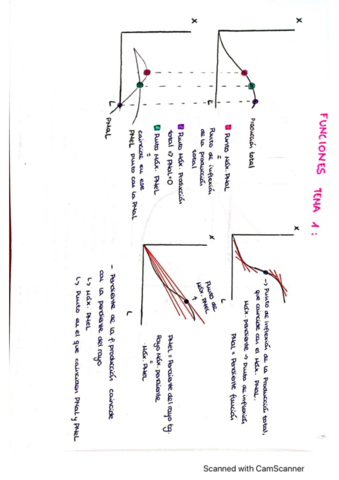 FUNCIONES TEMA 1:
X
L
Producción total
Punto Máx. PMaL
=
Punto de inflexión
de la producción
total
Punto Máx. Producción
total → PMaL=0
Punto Máx. PMeL
=
coincide en ese
punto con la PMaL
PMeL
X
L
PMaL
X
L
→ Punto de inflexión de la Producción total,
que coincide con el Máx. PMaL.
Máx. pendiente → Punto de inflexión
PMaL = Pendiente función
X
L
Punto de
Máx. PMeL
PMeL = Pendiente del rayo tg.
Rayo Máx. pendiente
=
Máx. PMeL
- Pendiente de la f. producción coincide
con la pendiente del rayo
↳ Máx. PMeL
↳ Punto en el que coinciden PMaL y PMeL
Scanned with CamScanner